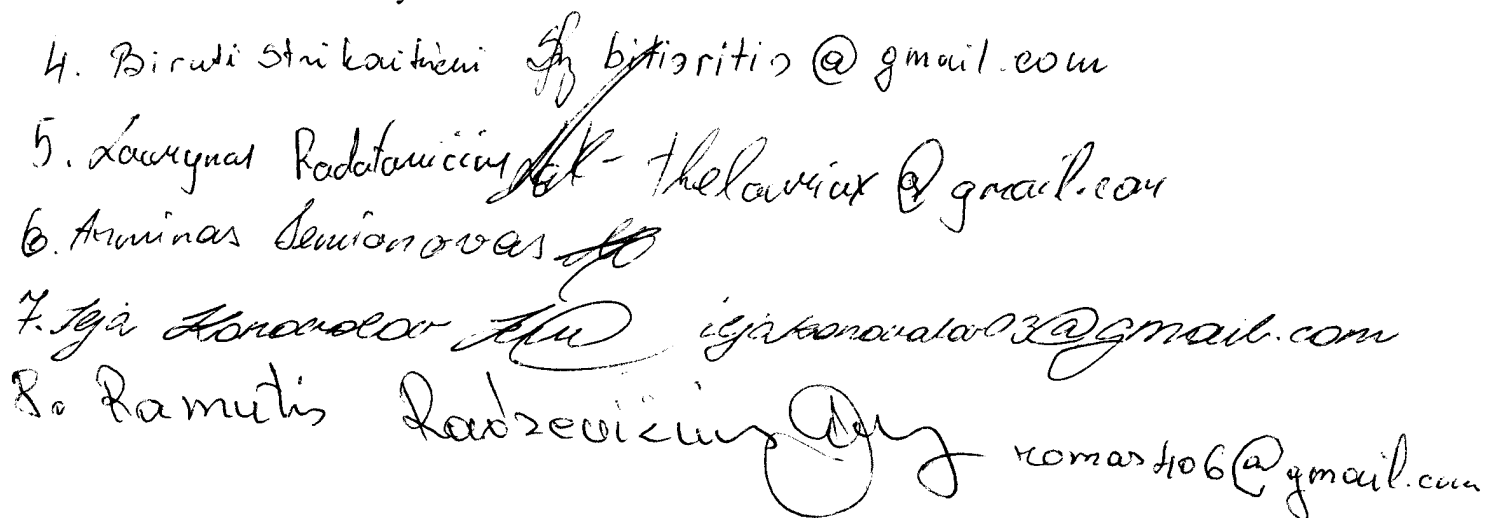 4. Birutė Strikaitienė bitisritis@gmail.com
5. Laurynas Radatavičius - thelauriux@gmail.com
6. Arminas Semionovas
7. Ilja Konovalov iljakonovalov03@gmail.com
8. Ramutis Radzevičius romas406@gmail.com